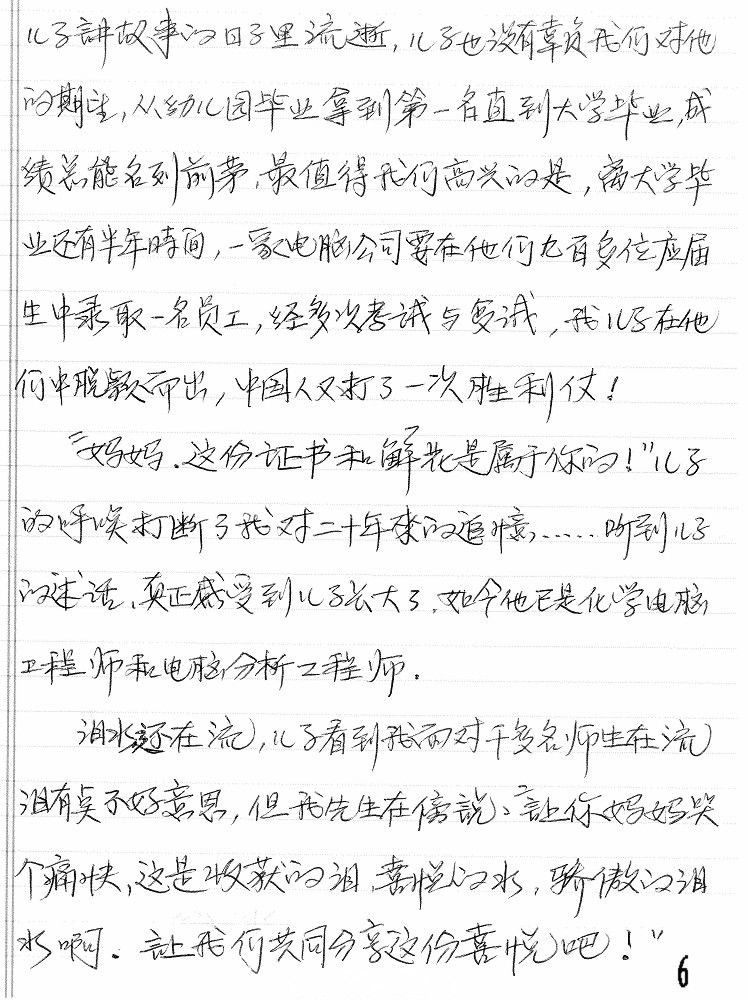 儿子讲故事的日子里流逝,儿子也没有辜负我们对他
的期望,从幼儿园毕业拿到第一名直到大学毕业,成
绩总能名列前茅,最值得我们高兴的是,离大学毕
业还有半年時间,一家电脑公司要在他们九百多位应届
生中录取一名员工,经多次考试与复试,我儿子在他
们中脱颖而出,中国人又打了一次胜利仗!
"妈妈.这份证书和鲜花是属于你的!"儿子
的呼唤打断了我对二十年來的追憶……听到儿子
的述话,真正感受到儿子长大了.如今他已是化学电脑
工程师和电脑分析工程师.
泪水还在流,儿子看到我面对千多名师生在流
泪有点不好意思,但我先生在傍說:"让你妈妈哭
个痛快,这是收获的泪,喜悦的水,骄傲的泪
水啊.让我们共同分享这份喜悦吧!"
6